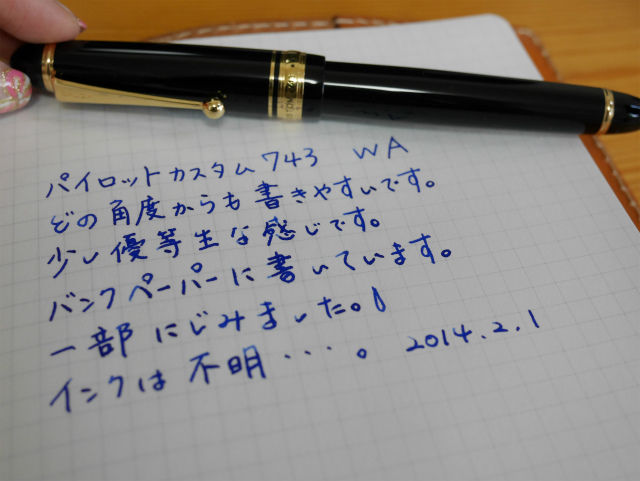 パイロットカスタム743 WA
どの角度からも書きやすいです。
少し優等生な感じです。
バンクペーパーに書いています。
一部にじみました。
インクは不明・・・。 2014.2.1